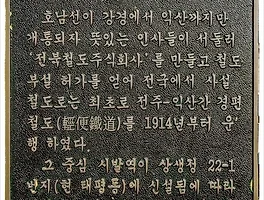 호남선이 강경에서 익산까지만
개통되자 뜻있는 인사들이 서둘러
'전북철도주식회사'를 만들고 철도
부설 허가를 얻어 전국에서 사설
철도로는 최초로 전주-익산간 경편
철도(輕便鐵道)를 1914년부터 운
행 하였다.
그 중심 시발역이 상생정 22-1
번지(현 태평동)에 신설됨에 따라